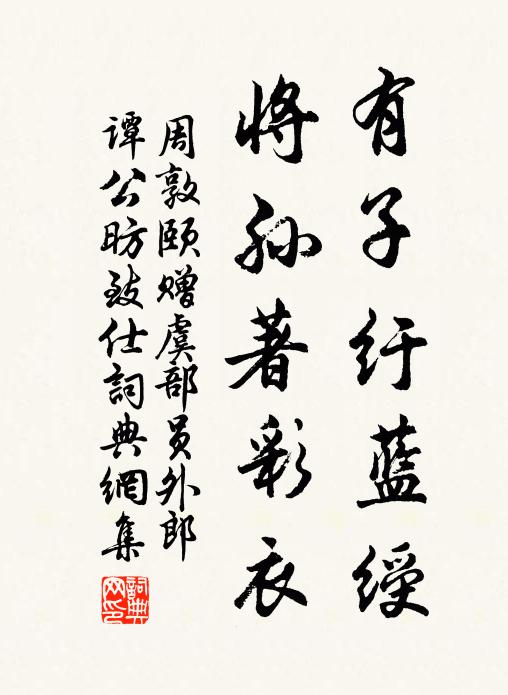 有子纡蓝綬
将孙著彩衣
周敦颐赠虞部员外郎
谭公昉致仕詞典網集
詞典网印